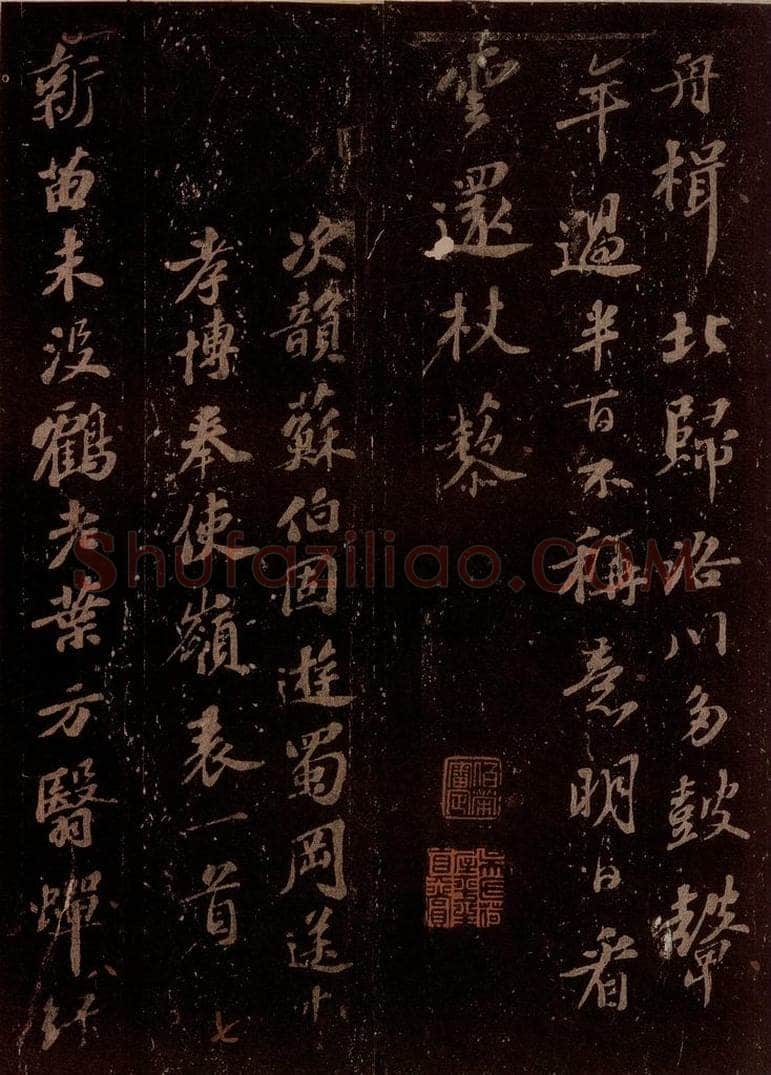 舟楫北歸洛川多鼓鼙
年過半百不稱意明日看
雲還杖藜
次韻蘇伯固遊蜀岡送
孝博奉使嶺表一首
七
新苗未没鶴老葉方翳蟬
八
Shufaziliao.COM